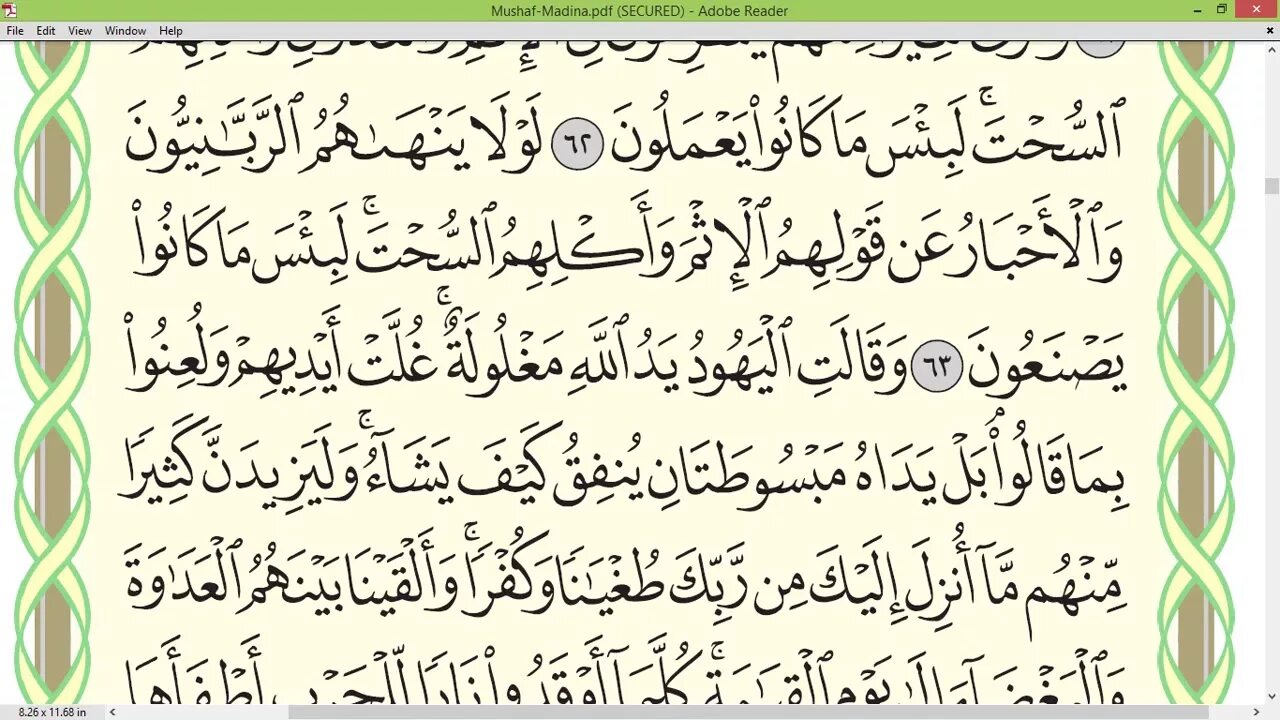 Mushaf-Madina.pdf (SECURED) - Adobe Reader
File Edit View Window Help
ٱلسُّحْتَ ۚ لَبِئْسَ مَا كَانُوا۟ يَعْمَلُونَ ٦٢ لَوْلَا يَنْهَىٰهُمُ ٱلرَّبَّـٰنِيُّونَ
وَٱلْأَحْبَارُ عَن قَوْلِهِمُ ٱلْإِثْمَ وَأَكْلِهِمُ ٱلسُّحْتَ ۚ لَبِئْسَ مَا كَانُوا۟
يَصْنَعُونَ ٦٣ وَقَالَتِ ٱلْيَهُودُ يَدُ ٱللَّهِ مَغْلُولَةٌ ۚ غُلَّتْ أَيْدِيهِمْ وَلُعِنُوا۟
بِمَا قَالُوا۟ ۘ بَلْ يَدَاهُ مَبْسُوطَتَانِ يُنفِقُ كَيْفَ يَشَآءُ ۚ وَلَيَزِيدَنَّ كَثِيرًا
مِّنْهُم مَّآ أُنزِلَ إِلَيْكَ مِن رَّبِّكَ طُغْيَـٰنًا وَكُفْرًا ۚ وَأَلْقَيْنَا بَيْنَهُمُ ٱلْعَدَٰوَةَ
وَٱلْبَغْضَآءَ إِلَىٰ يَوْمِ ٱلْقِيَـٰمَةِ ۚ كُلَّمَآ أَوْقَدُوا۟ نَارًا لِّلْحَرْبِ أَطْفَأَهَا
8.26 x 11.68 in